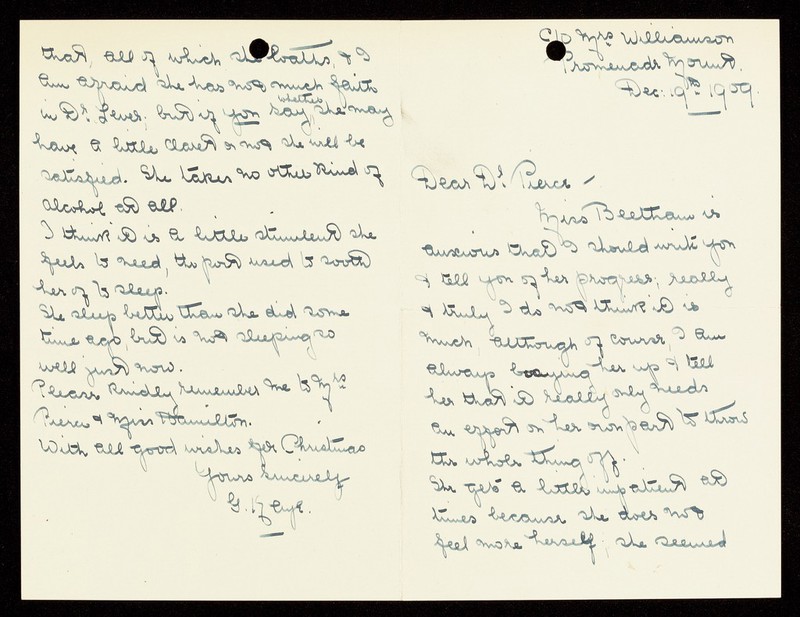 C/o Mrs Williamson
Promenade Mount.
Dec: 19th 1909.
Dear Dr Pierce –
Miss Beetham is
anxious that I should write you
& tell you of her progress; really
& truly I do not think it is
much, although of course, I am
always buoying her up & tell
her that it really only needs
an effort on her own part to throw
the whole thing off.
She gets a little impatient at
times because she does not
feel more herself; she seemed
that, all of which she loaths, & I
am afraid she has not much faith
in Dr Lever; but if you say, whether she may
have a little claret or not she will be
satisfied. She takes no other kind of
alcohol at all.
I think it is a little stimulent she
feels to need, the port used to sooth
her of to sleep.
She sleep better than she did some
time ago, but is not sleeping so
well just now.
Please kindly remember me to Mrs
Pierce & Miss Hamilton.
With all good wishes for Christmas
Yours sincerely
G. Kaye.